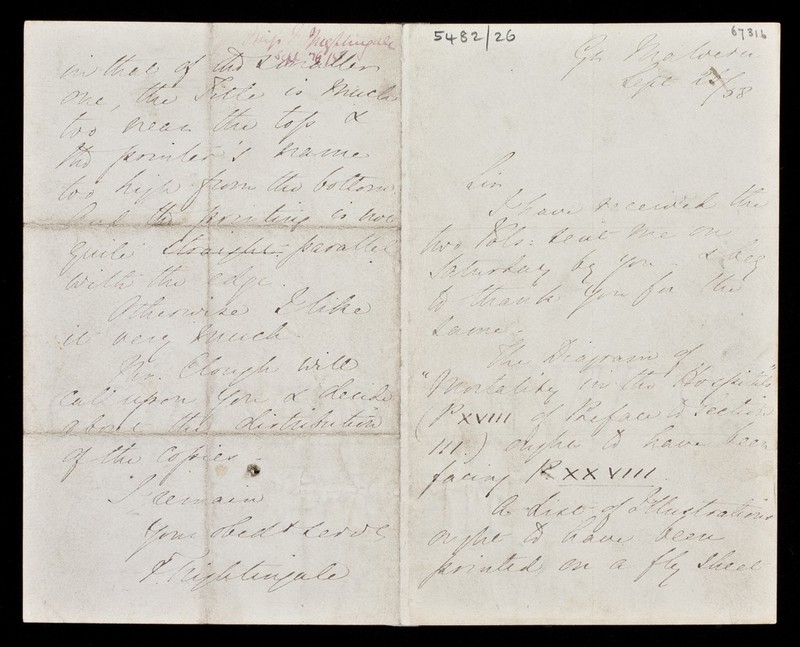 5482/26
67316
Gt Malvern
Sept 26/58
Sir
I have received the
two Vols: sent me on
Saturday by you & beg
to thank you for the
same.
The Diagram of
"Mortality in the Hospitals"
(P XVIII of Preface to Section
III.) ought to have been
facing P XXVIII
A List of Illustrations
ought to have been
printed on a fly sheet
Miss F Nightingale
Sept 26
in that of the smaller
one, the Title is much
too near the top &
the printer's name
too high from the bottom
the printing is not
quite straight parallel
with the edge.
Otherwise I like
it very much
Mr. Clough will
call upon you & decide
about the distribution
of the copies.
I remain
Your obedt servt
F. Nightingale